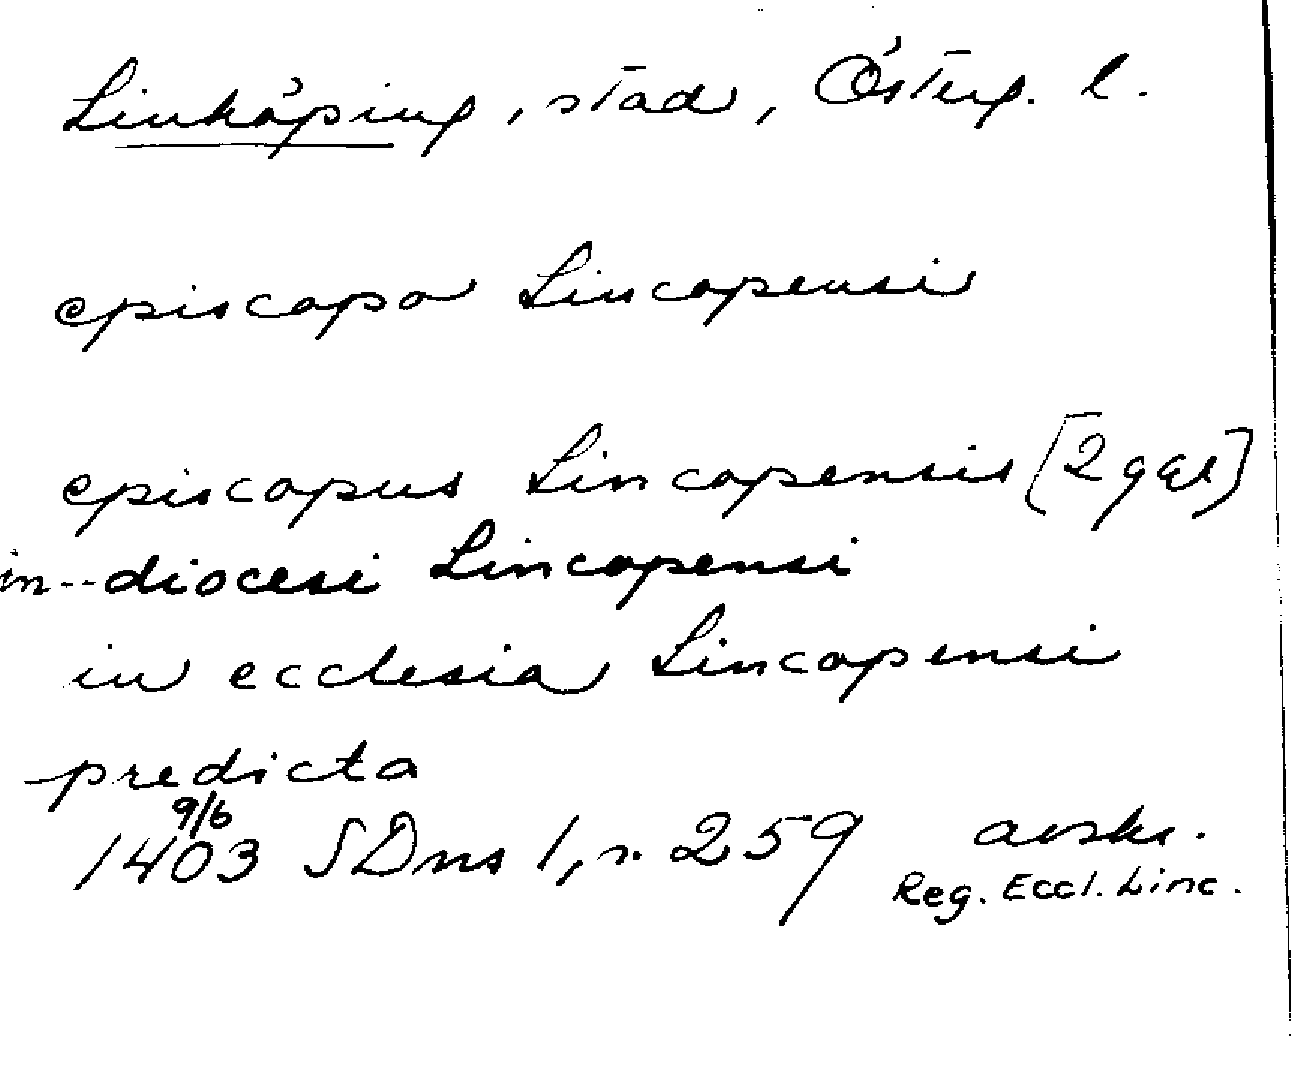 Linköping, stad, Österg. l.
episcopo Lincopensi
episcopus Lincopensis [2 ggr]
in -- diocesi Lincopensi
in ecclesia Lincopensi
predicta
9/6
1403 SDns 1, s. 259 avskr.
Reg. Eccl. Linc.